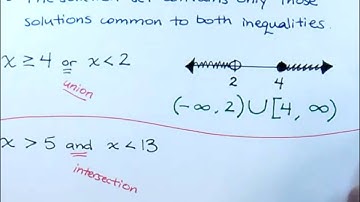 The solution set contains only those
solutions common to both inequalities.
x ≥ 4 or x < 2
union
2 4
(-∞, 2) ∪ [4, ∞)
x > 5 and x < 13
intersection